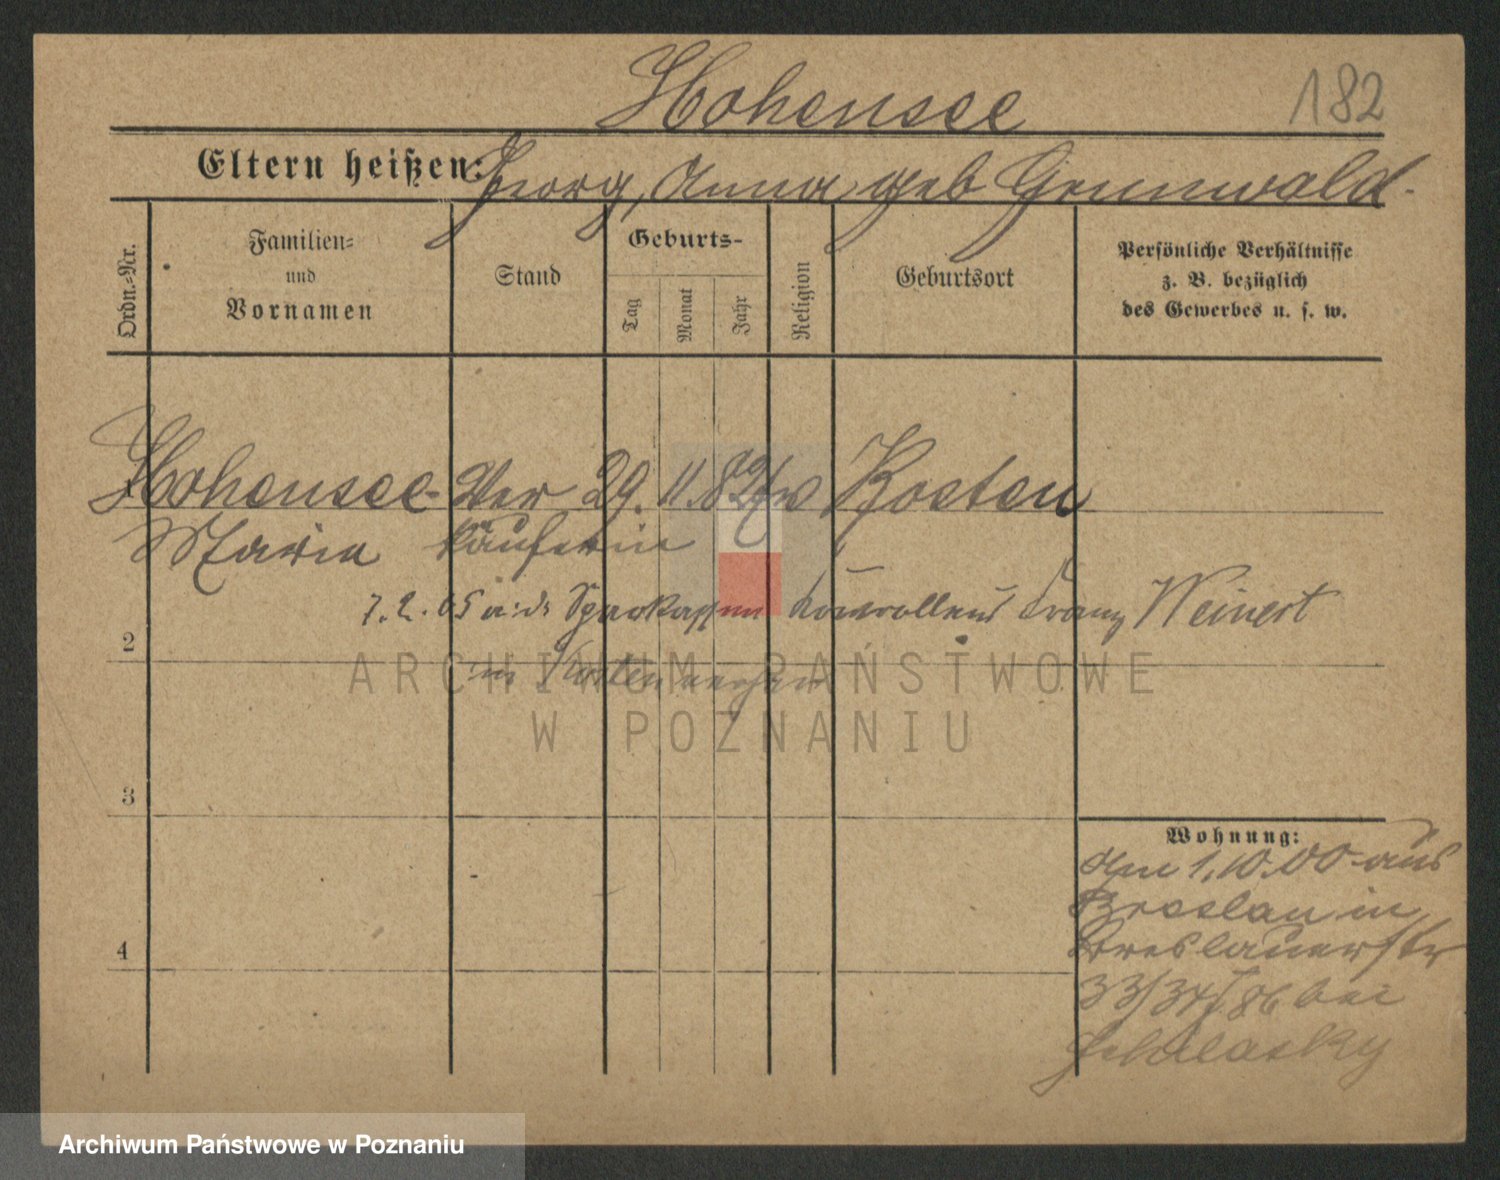 Hohensee 182
Eltern heißen: Georg, Anna geb Grunwald.
Ordn.-Nr.
Familien=
und
Vornamen
Stand
Geburts-
Tag
Monat
Jahr
Religion
Geburtsort
Persönliche Verhältnisse
z. B. bezüglich
des Gewerbes u. s. w.
1 Hohensee- Ver 29. 11. 82 Kosten
Maria käuferin
7.2.05 a. d. Sparkassen Franz Weinert
2
in Kosten
ARCHIWUM PAŃSTWOWE
W POZNANIU
3
Wohnung:
Am 1.10.00 aus
Breslau in
Breslauerstr
4
33/34 bei
Archiwum Państwowe w Poznaniu